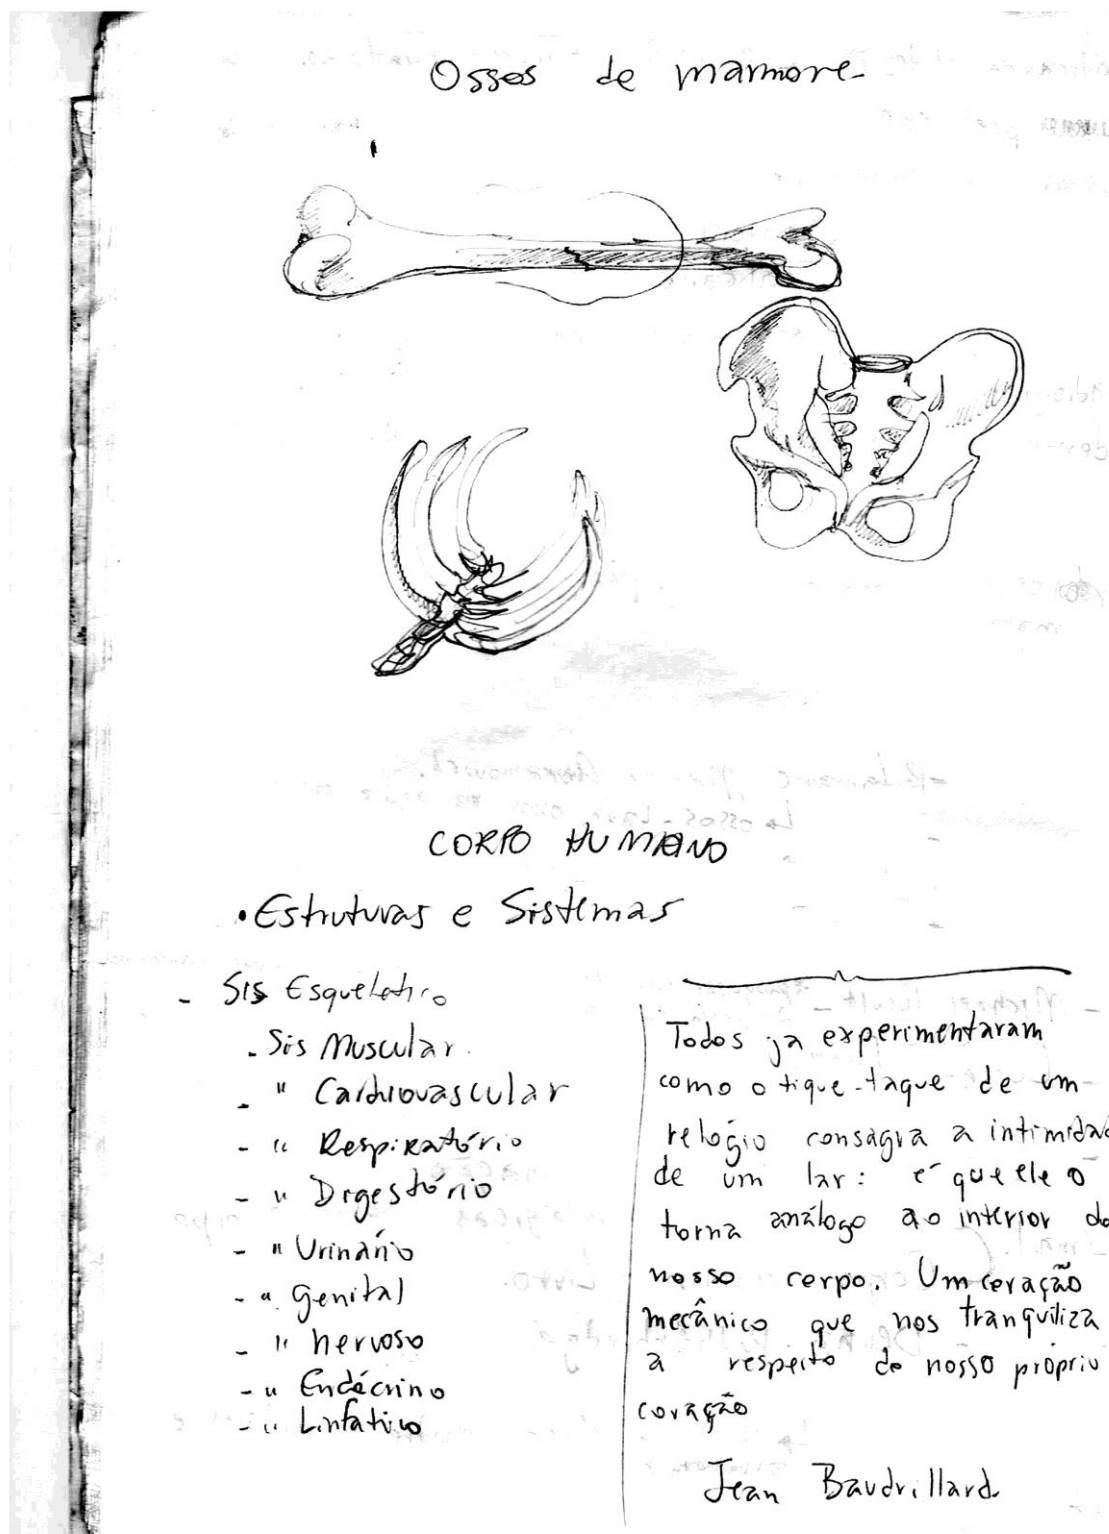 Ossos de marmore
CORPO HUMANO
• Estruturas e Sistemas
- Sis Esqueletico
- Sis Muscular.
- " Cardiovascular
- " Respiratório
- " Digestório
- " Urinário
- " genital
- " nervoso
- " Endócrino
- " Linfático
Todos ja experimentaram
como o tique-taque de um
relógio consagra a intimidad
de um lar: é que ele o
torna análogo ao interior do
nosso corpo. Um coração
mecânico que nos tranquiliza
a respeito do nosso próprio
coração
Jean Baudrillard.